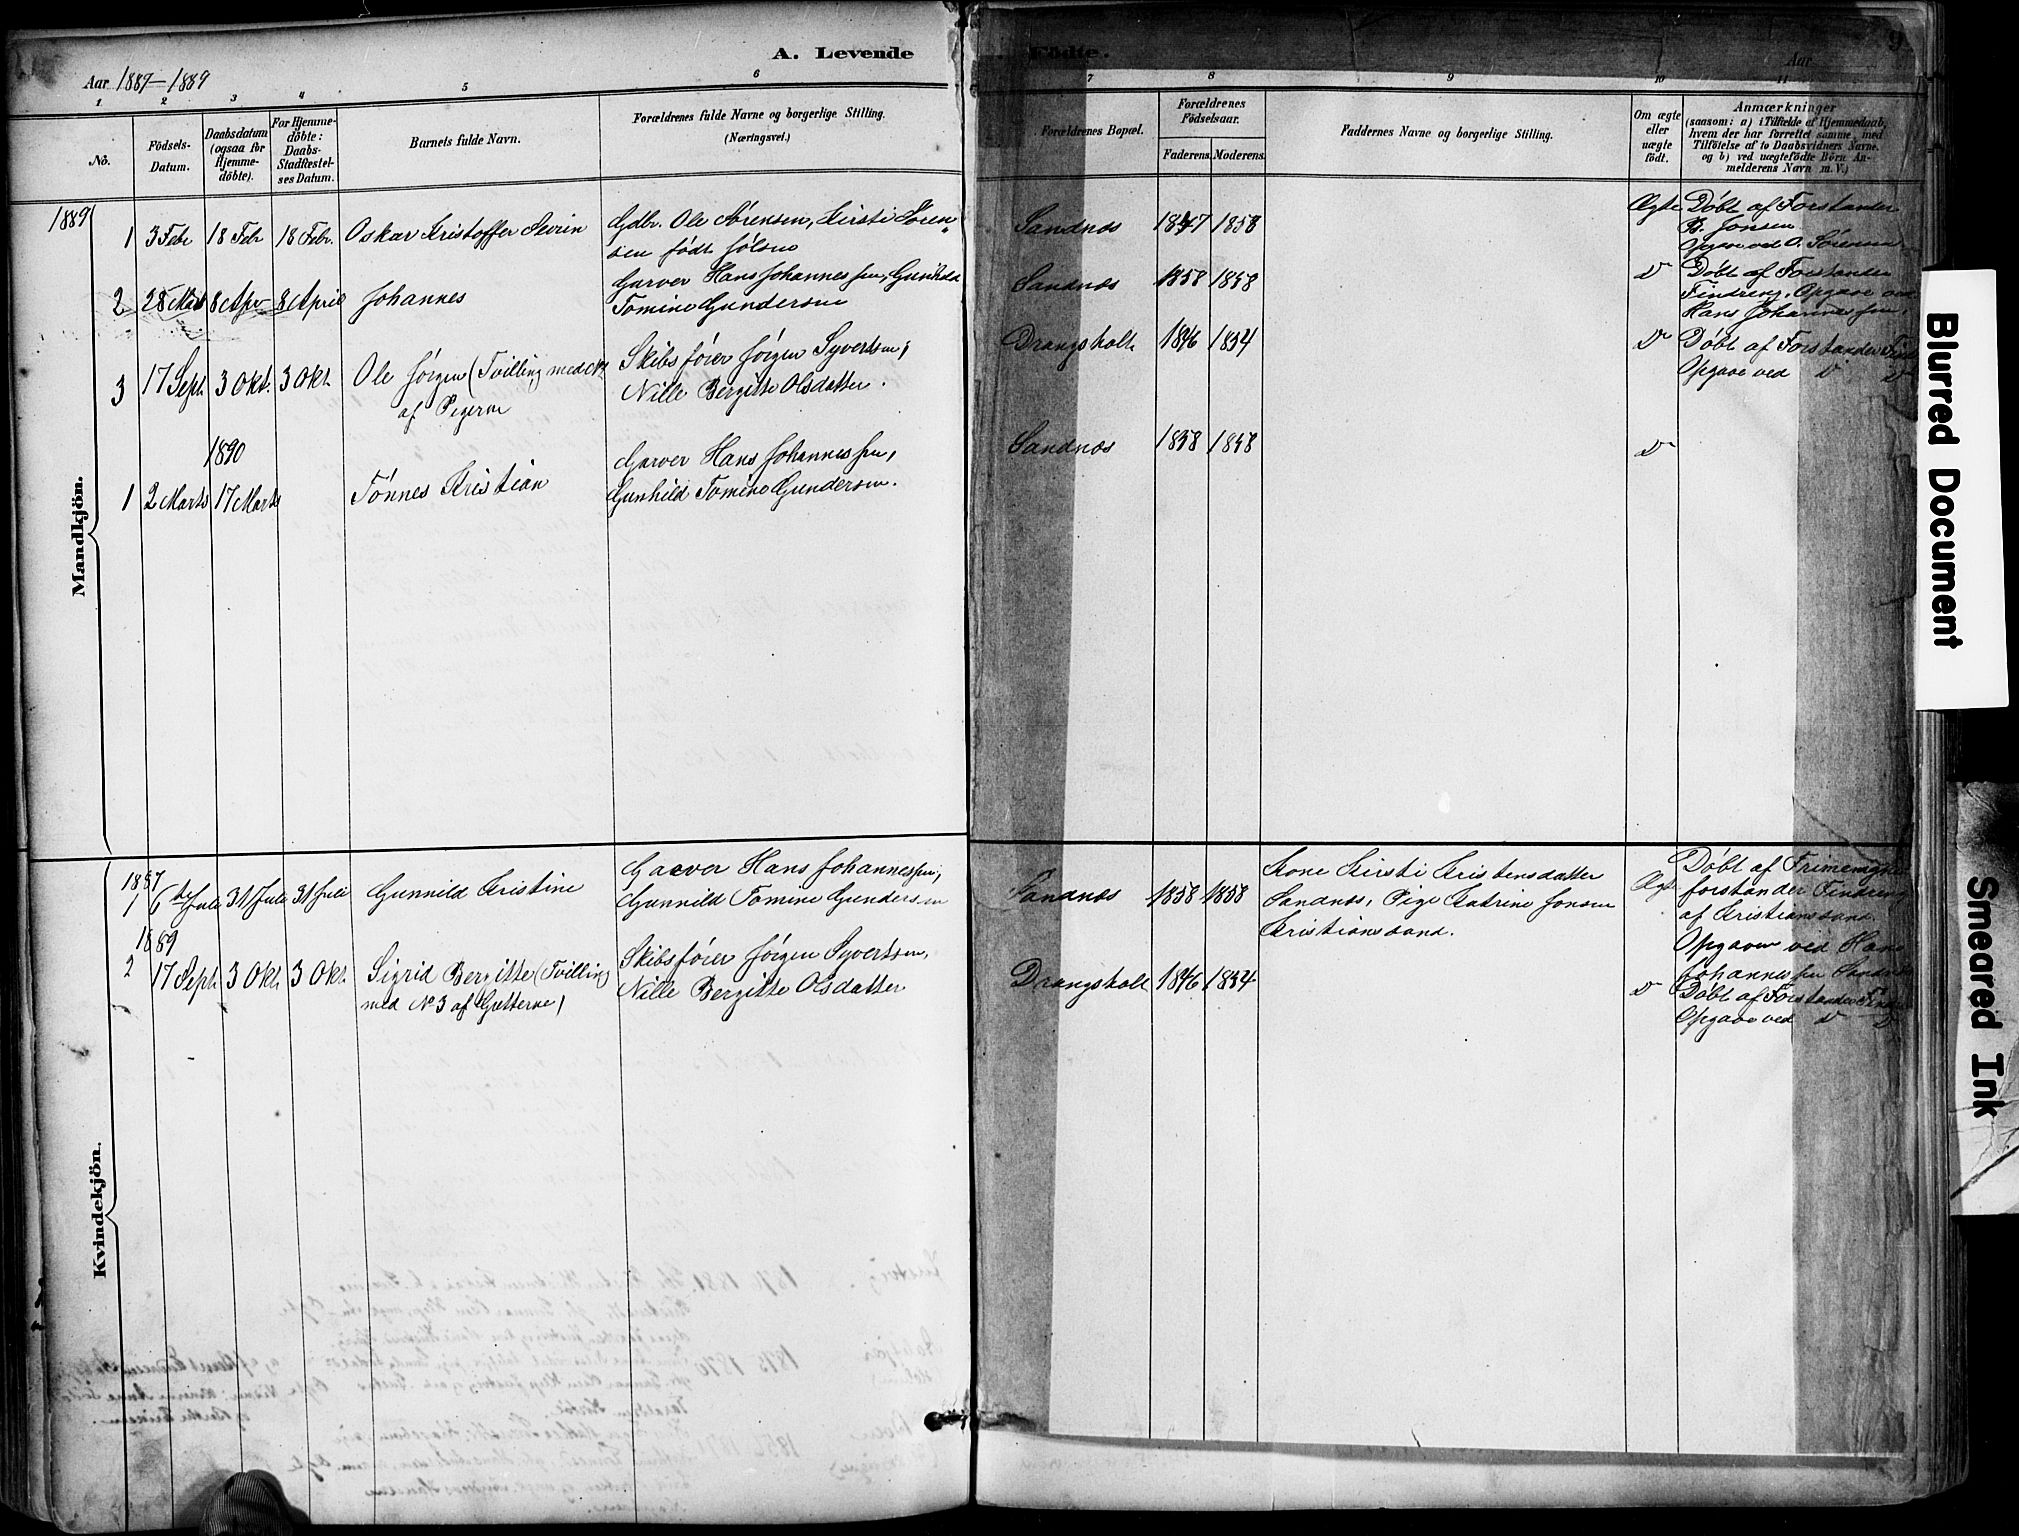 A. Levende Födte.
9
Aar 1887-1889
Aar
1 2 3 4 5 6 7 8 9 10 11
No.
Födsels-Datum.
Daabsdatum (ogsaa for Hjemme-döbte).
For Hjemme-döbte: Daabs-Stadfæstel-ses Datum.
Barnets fulde Navn.
Forældrenes fulde Navne og borgerlige Stilling.
(Næringsvei.)
Forældrenes Bopæl.
Forældrenes Födselsaar.
Faderens. Moderens.
Faddernes Navne og borgerlige Stilling.
Om ægte eller uægte födt.
Anmærkninger
(saasom: a) i Tilfælde af Hjemmedaab,
hvem der har forrettet samme, med
Tilföielse af to Daabsvidners Navne,
og b) ved uægtefödte Börn An-
melderens Navn m. V.)
Mandkjön.
1889
1 3 Febr 18 Febr 18 Febr. Oskar Kristoffer Severin
Gdbr. Ole Sørensen, Kirsti Søren-
sen født
Sandnæs 1847 1858
Ægte
Døbt af Forstander
B. Jonsen
Opgave ved O. Sørensen
2 28 Marts 8 Apr 8 April Johannes
Garver Hans Johannessen, Gunhild
Tomine Gundersen
Sandnæs 1858 1858
D
Døbt af Forstander
Findreng. Opgave ved
Hans Johannessen.
3 17 Sept 3 Okt. 3 Okt. Ole Jørgen (Tvilling med
af Pigerne
Skibsfører Jørgen Syvertsen,
Nille Bergitte Olsdatter.
Drangsholt 1846 1854
D
Døbt af Forstander
Opgave ved D D
1890
1 2 Marts 17 Marts Tønnes Kristian
Garver Hans Johannessen,
Gunhild Tomine Gundersen.
Sandnæs 1858 1858
D
Kvindekjön.
1887
1 6te Juli 31 Juli 31 Juli Gunnild Kristine
Garver Hans Johannessen,
Gunnild Tomine Gundersen
Sandnæs 1858 1858
Kone Kirsti Kristensdatter
Sandnæs, Pige Katrine Jonsen
Kristianssand.
Ægte
Døbt af Frimenigheds
forstander Findreng
af Kristianssand.
Opgaven ved Hans
Johannessen Sandnæs
1889
2 17 Sept 3 Okt 3 Okt. Sigrid Bergitte (Tvilling
med No 3 af Gutterne)
Skibsfører Jørgen Syvertsen,
Nille Bergitte Olsdatter
Drangsholt 1846 1854
D
Døbt af Forstander
Opgave ved D D
Blurred Document
Smeared Ink